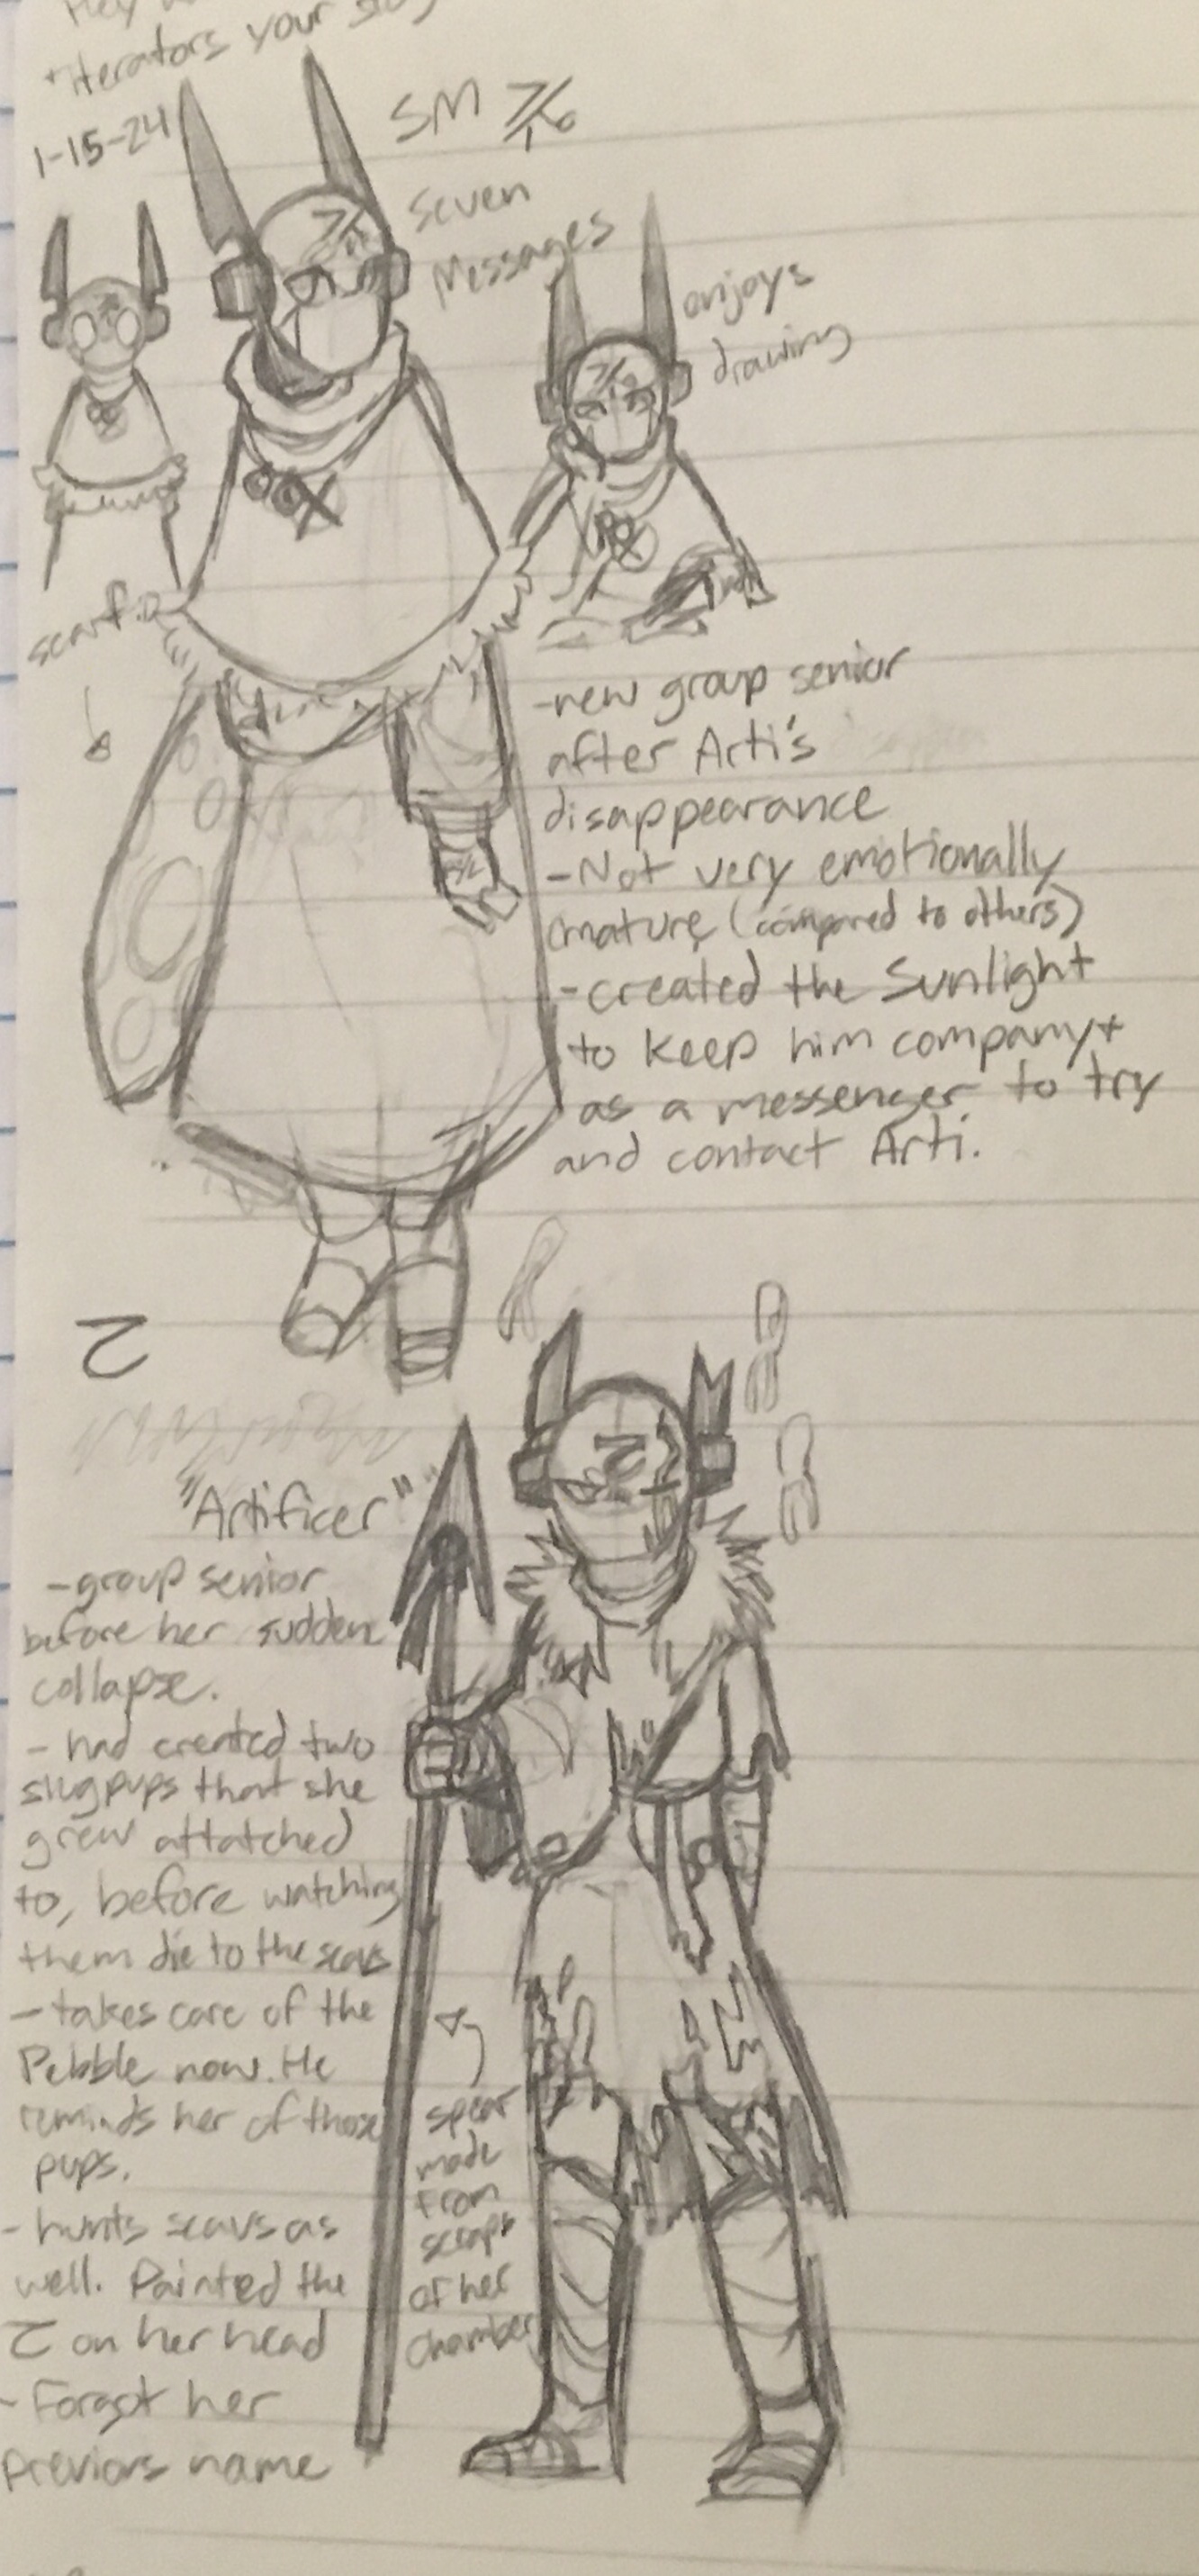 Hey
+iterators your
1-15-24
SM
Seven
Messages
enjoys
drawing
scarf:D
-new group senior
after Arti's
disappearance
-Not very emotionally
mature, (compared to others)
-created the Sunlight
to keep him company+
as a messenger to try
and contact Arti.
"Artificer"
-group senior
before her sudden
collapse.
- had created two
slugpups that she
grew attatched
to, before watching
them die to the scavs
-takes care of the
Pebble now. He
reminds her of those
pups.
- hunts scavs as
well. Painted the
on her head
- Forgot her
previous name
spear
made
from
scraps
of her
chamber